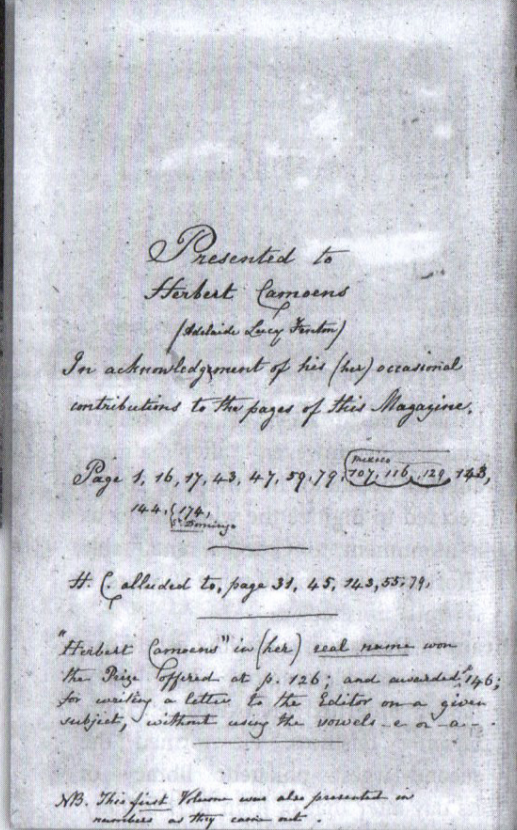 Presented to
Herbert Camoens
(Adelaide Lucy Fenton)
In acknowledgment of his (her) occasional
contributions to the pages of this Magazine.
Mexico
Page 1, 16, 17, 43, 47, 59, 79, 107, 116, 129, 143,
144, 174,
St Domingo
H. C alluded to, page 31, 45, 143, 55, 79,
"Herbert Camoens" in (her) real name won
the Prize offered at p. 126; and awarded p 146;
for writing a letter to the Editor on a given
subject, without using the vowels - e or - a - .
NB. This first Volume was also presented in
numbers as they came out.